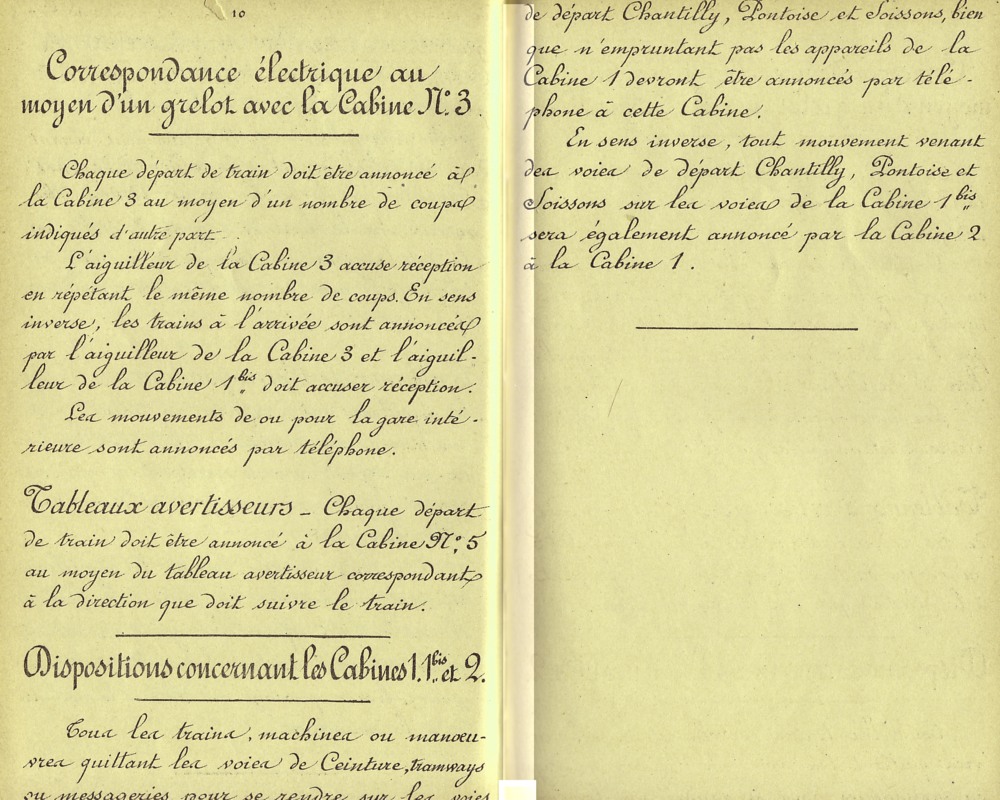 10
Correspondance électrique au
moyen d'un grelot avec la Cabine N° 3.
Chaque départ de train doit être annoncé à
la Cabine 3 au moyen d'un nombre de coups
indiqués d'autre part.
L'aiguilleur de la Cabine 3 accuse réception
en répétant le même nombre de coups. En sens
inverse, les trains à l'arrivée sont annoncés
par l'aiguilleur de la Cabine 3 et l'aiguil-
leur de la Cabine 1 bis doit accuser réception.
Les mouvements de ou pour la gare inté-
rieure sont annoncés par téléphone.
Tableaux avertisseurs - Chaque départ
de train doit être annoncé à la Cabine N° 5
au moyen du tableau avertisseur correspondant
à la direction que doit suivre le train.
Dispositions concernant les Cabines 1. 1 bis et 2.
Tous les trains, machines ou manœu-
vres quittant les voies de Ceinture, tramways
ou messageries pour se rendre sur les voies
de départ Chantilly, Pontoise et Soissons, bien
que n'empruntant pas les appareils de la
Cabine 1 devront être annoncés par télé-
phone à cette Cabine.
En sens inverse, tout mouvement venant
des voies de départ Chantilly, Pontoise et
Soissons sur les voies de la Cabine 1 bis
sera également annoncé par la Cabine 2
à la Cabine 1.